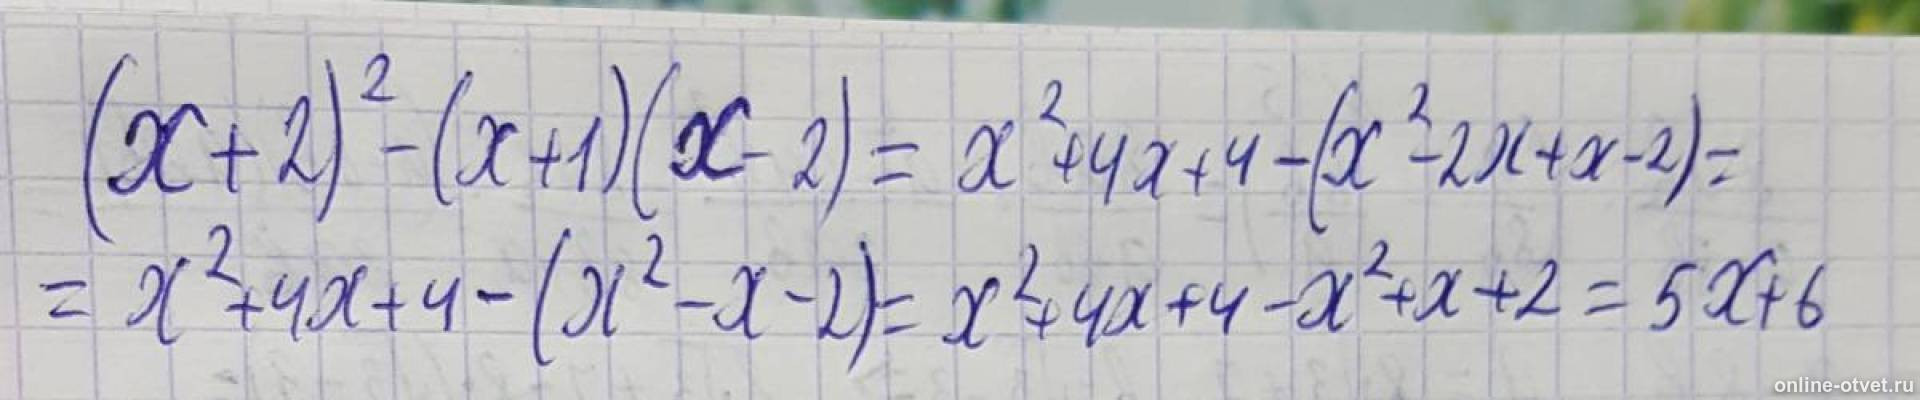 (x+2)²-(x+1)(x-2)=x²+4x+4-(x²-2x+x-2)=
=x²+4x+4-(x²-x-2)=x²+4x+4-x²+x+2=5x+6
online-otvet.ru